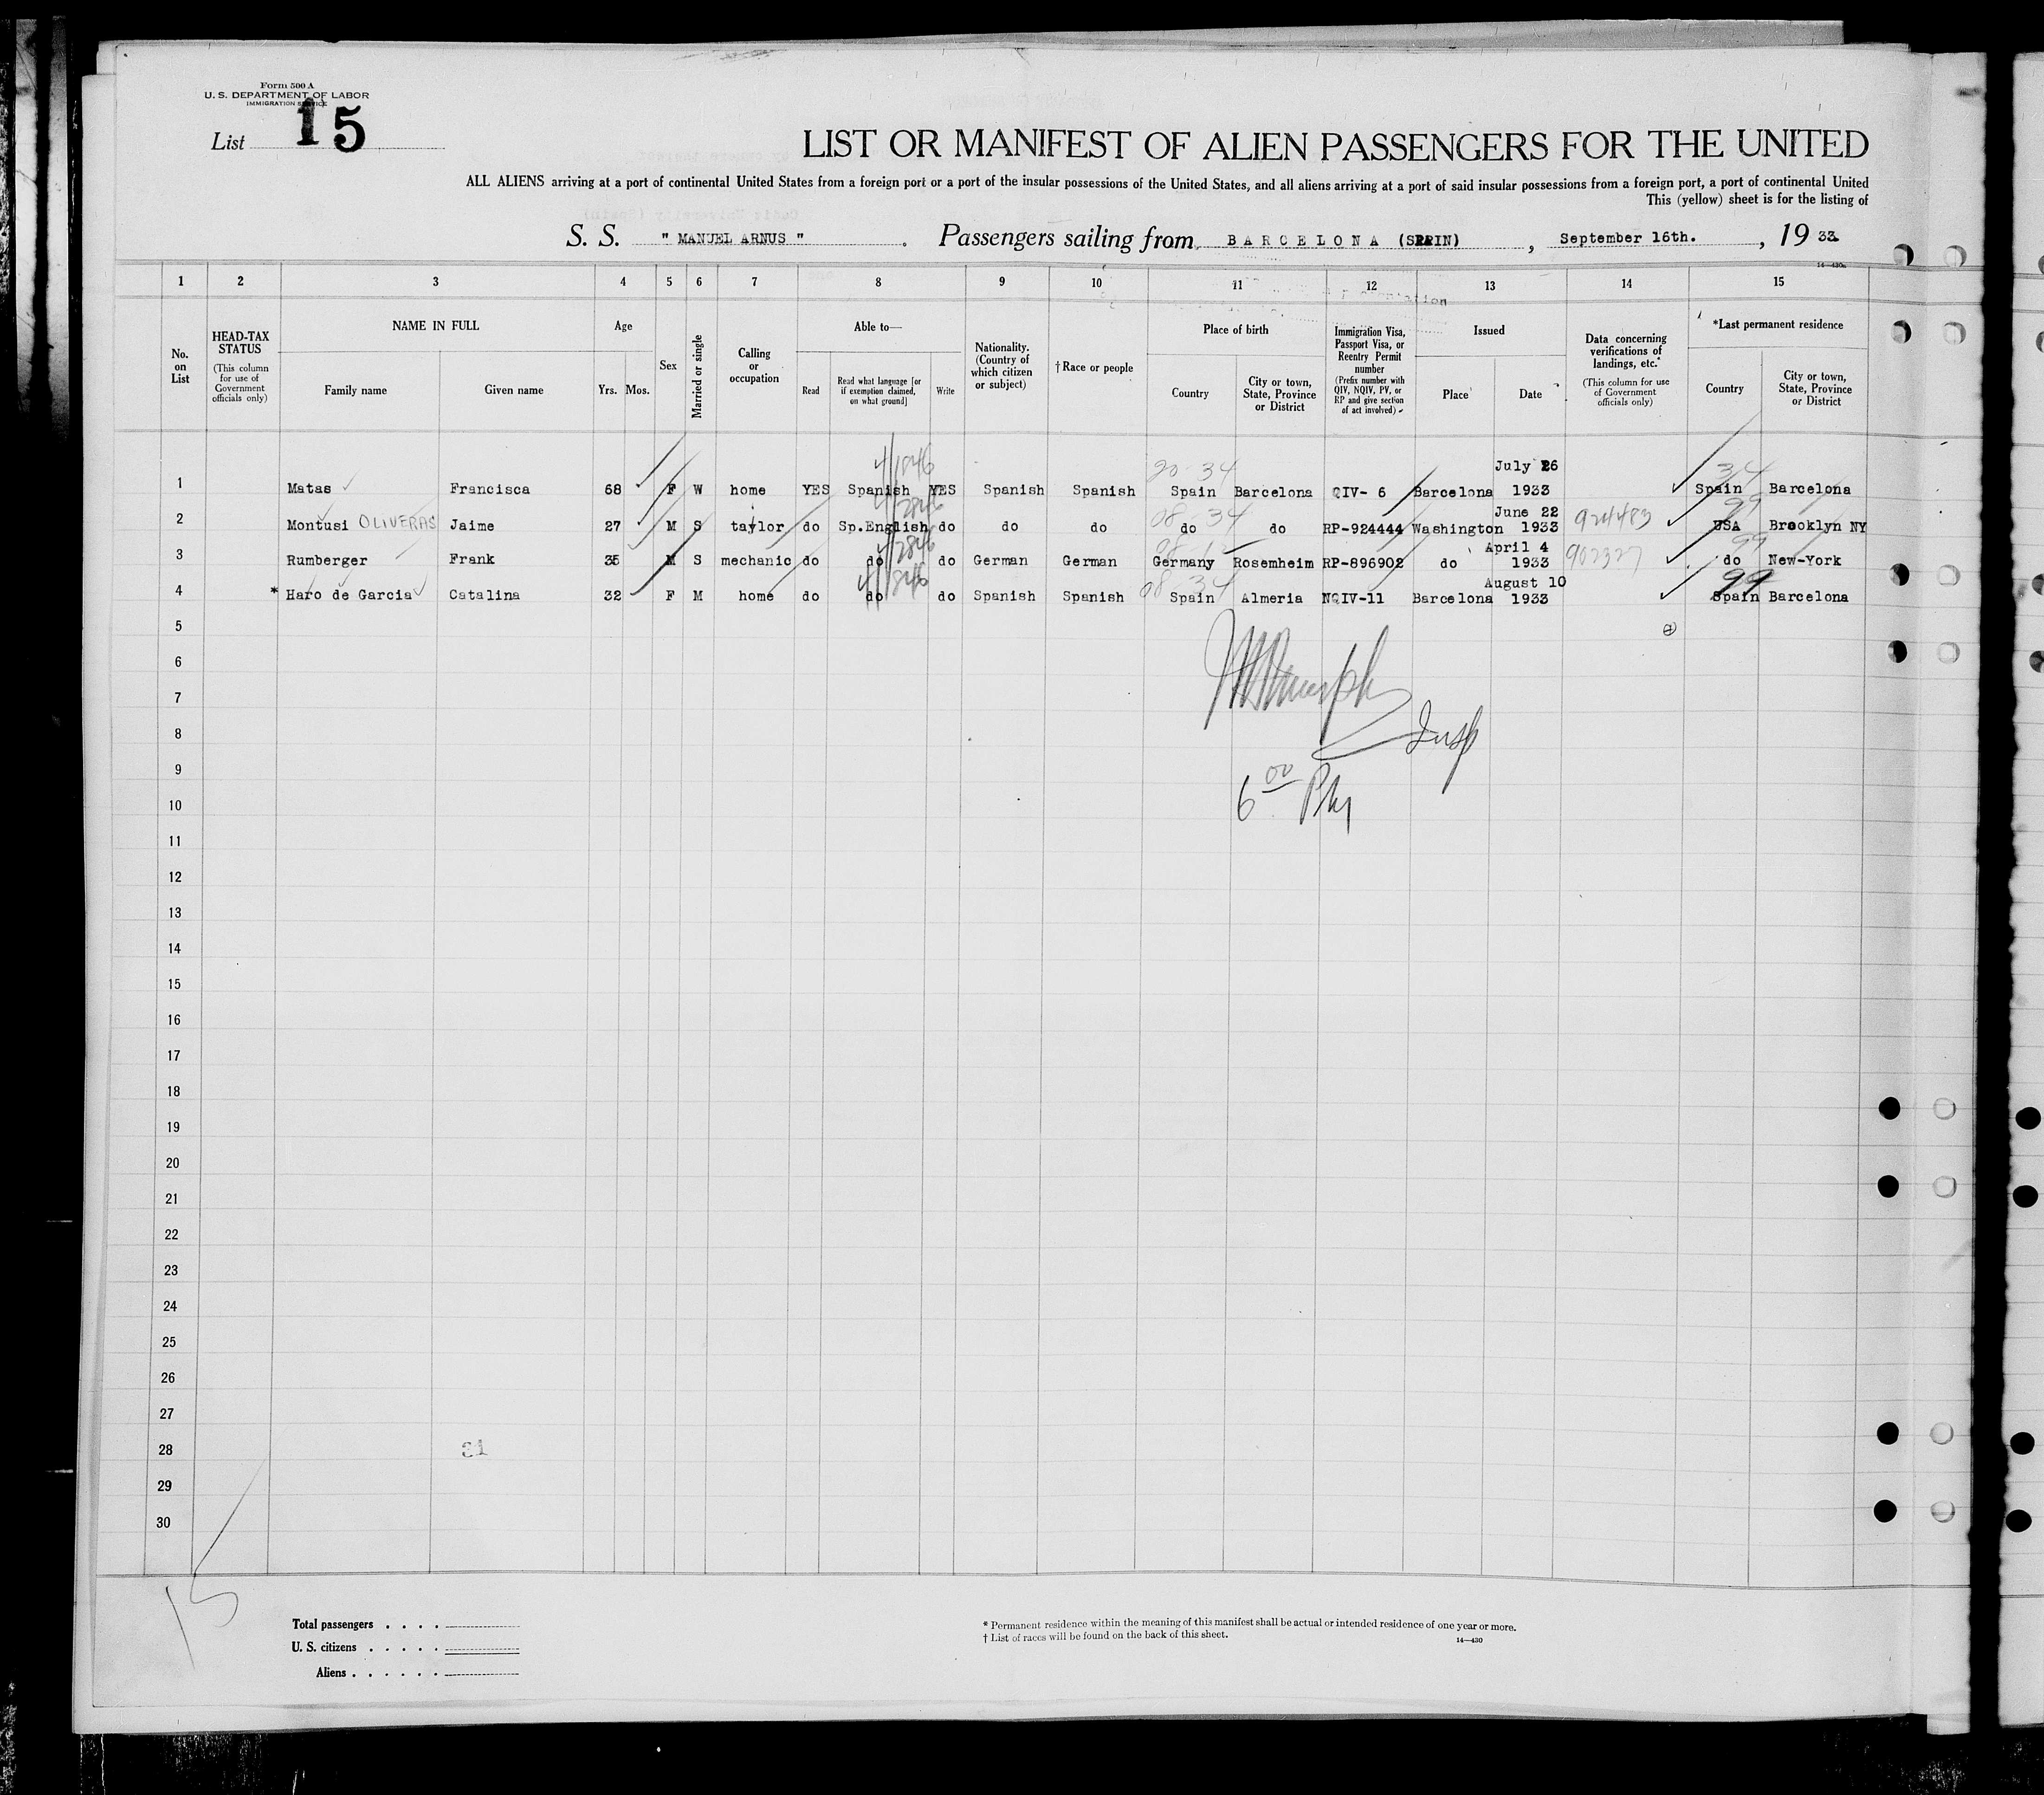 Form 500 A
U. S. DEPARTMENT OF LABOR
IMMIGRATION SERVICE
List 15
LIST OR MANIFEST OF ALIEN PASSENGERS FOR THE UNITED
ALL ALIENS arriving at a port of continental United States from a foreign port or a port of the insular possessions of the United States, and all aliens arriving at a port of said insular possessions from a foreign port, a port of continental United
This (yellow) sheet is for the listing of
S. S. " MANUEL ARNUS " . Passengers sailing from BARCELONA (SPAIN) , September 16th. , 19 33
14—430a
1 2 3 4 5 6 7 8 9 10 11 12 13 14 15
No. on List
HEAD-TAX STATUS
(This column for use of Government officials only)
NAME IN FULL
Family name Given name
Age
Yrs. Mos.
Sex
Married or single
Calling or occupation
Able to—
Read
Read what language [or if exemption claimed, on what ground]
Write
Nationality. (Country of which citizen or subject)
†Race or people
Place of birth
Country
City or town, State, Province or District
Immigration Visa, Passport Visa, or Reentry Permit number
(Prefix number with QIV, NQIV, PV, or RP and give section of act involved)
Issued
Place Date
Data concerning verifications of landings, etc.
(This column for use of Government officials only)
*Last permanent residence
Country
City or town, State, Province or District
20 34 34
1 Matas Francisca 68 F W home YES Spanish YES Spanish Spanish Spain Barcelona QIV- 6 Barcelona July 26 1933 Spain Barcelona
08 34 99
2 Montusi OLIVERAS Jaime 27 M S taylor do Sp.English do do do do do RP-924444 Washington June 22 1933 924483 USA Brooklyn NY
99
3 Rumberger Frank 35 M S mechanic do do do German German Germany Rosemheim RP-896902 do April 4 1933 902327 do New-York
08 34 99
4 * Haro de Garcia Catalina 32 F M home do do do Spanish Spanish Spain Almeria NQIV-11 Barcelona August 10 1933 Spain Barcelona
5
6
7
8
Insp
9
10
6 00 PM
11
12
13
14
15
16
17
18
19
20
21
22
23
24
25
26
27
28
31
29
30
15
Total passengers . . . .
U. S. citizens . . . . .
Aliens . . . . . .
* Permanent residence within the meaning of this manifest shall be actual or intended residence of one year or more.
† List of races will be found on the back of this sheet.
14—430